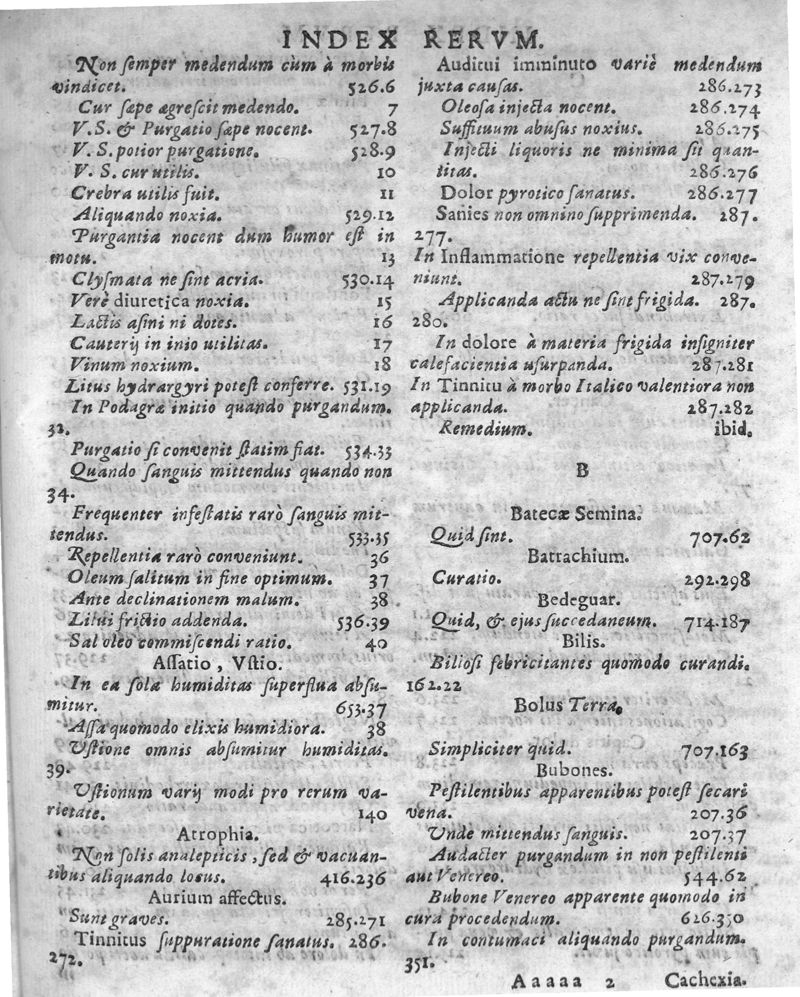 INDEX RERVM.
Non ſemper medendum cùm à morbis
vindicet. 526.6
Cur ſæpe ægreſcit medendo. 7
V. S. & Purgatio ſæpe nocent. 527.8
V. S. potior purgatione. 528.9
V. S. cur utilis. 10
Crebra utilis fuit. 11
Aliquando noxia. 529.12
Purgantia nocent dum humor eſt in
motu. 13
Clyſmata ne ſint acria. 530.14
Verè diuretica noxia. 15
Lactis aſini ni dotes. 16
Cauterij in inio utilitas. 17
Vinum noxium. 18
Litus hydrargyri poteſt conferre. 531.19
In Podagræ initio quando purgandum.
32.
Purgatio ſi convenit ſtatim fiat. 534.33
Quando ſanguis mittendus quando non
34.
Frequenter infeſtatis rarò ſanguis mit-
tendus. 533.35
Repellentia rarò conveniunt. 36
Oleum ſalitum in fine optimum. 37
Ante declinationem malum. 38
Litui frictio addenda. 536.39
Sal oleo commiſcendi ratio. 40
Aſſatio, Vſtio.
In ea ſola humiditas ſuperflua abſu-
mitur. 653.37
Aſſa quomodo elixis humidiora. 38
Vſtione omnis abſumitur humiditas.
39.
Vſtionum varij modi pro rerum va-
rietate. 140
Atrophia.
Non ſolis analepticis, ſed & vacuan-
tibus aliquando locus. 416.236
Aurium affectus.
Sunt graves. 285.271
Tinnitus ſuppuratione ſanatus. 286.
272.
Auditui imminuto variè medendum
juxta cauſas. 286.273
Oleoſa injecta nocent. 286.274
Suffituum abuſus noxius. 286.275
Injecti liquoris ne minima ſit quan-
titas. 286.276
Dolor pyrotico ſanatus. 286.277
Sanies non omnino ſupprimenda. 287.
277.
In Inflammatione repellentia vix conve-
niunt. 287.279
Applicanda actu ne ſint frigida. 287.
280.
In dolore à materia frigida inſigniter
calefacientia uſurpanda. 287.281
In Tinnitu à morbo Italico valentiora non
applicanda. 287.282
Remedium. ibid.
B
Batecæ Semina.
Quid ſint. 707.62
Batrachium.
Curatio. 292.298
Bedeguar.
Quid, & ejus ſuccedaneum. 714.187
Bilis.
Bilioſi febricitantes quomodo curandi.
162.22
Bolus Terra.
Simpliciter quid. 707.163
Bubones.
Peſtilentibus apparentibus poteſt ſecari
vena. 207.36
Unde mittendus ſanguis. 207.37
Audacter purgandum in non peſtilenti
aut Venereo. 544.62
Bubone Venereo apparente quomodo in
cura procedendum. 626.350
In contumaci aliquando purgandum.
351.
Aaaaa 2 Cachexia.